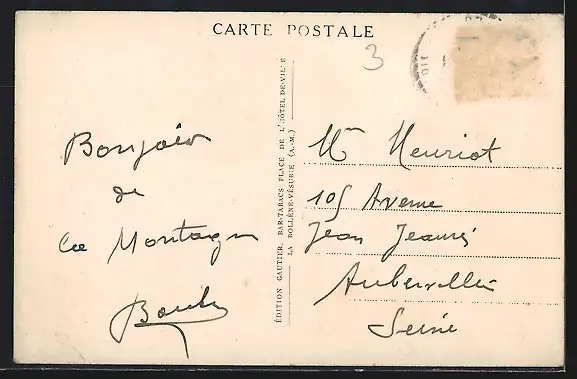 CARTE POSTALE
3
Bonjour
de
la Montagne
ÉDITION GAUTIER, BAR-TABACS PLACE DE L'HÔTEL-DE-VILLE
LA BOLLÈNE-VÉSUBIE (A.-M.)
Mr Henriot
105 Avenue
Jean Jaurès
Aubervilliers
Seine